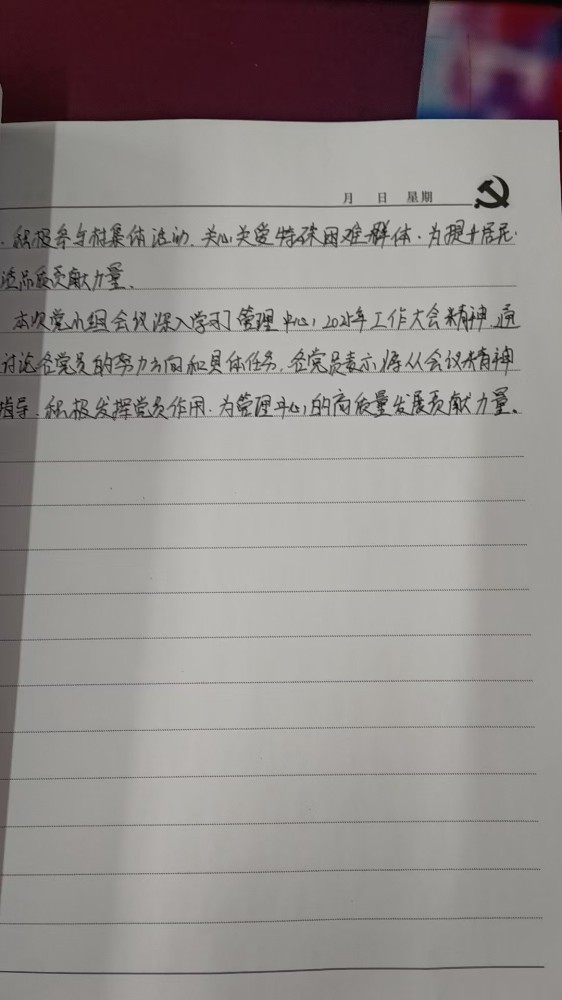 月 日 星期
积极参与村集体活动、关心关爱特殊困难群体,为提升居民
活品质贡献力量。
本次党小组会议深入学习了管理中心2025年工作大会精神,通
讨论各党员的努力方向和具体任务,各党员表示将以会议精神
指导,积极发挥党员作用,为管理中心的高质量发展贡献力量。